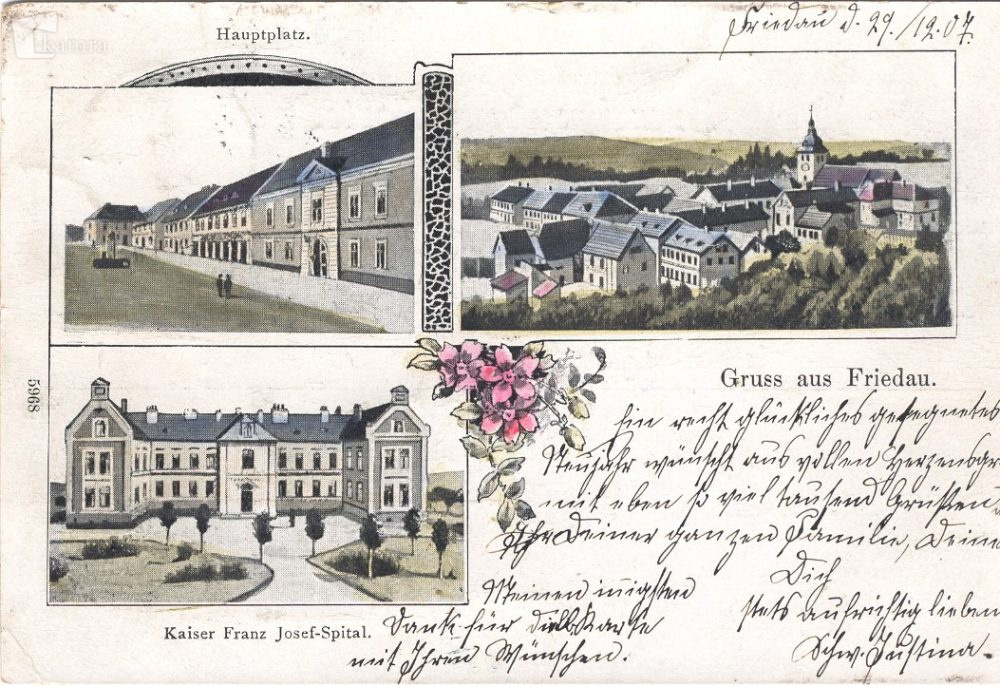 kamra
Hauptplatz.
Friedau d. 29./12.07.
5968
Gruss aus Friedau.
Ein recht glückliches gesegnetes
Neujahr wünscht aus vollen
mit eben so viel tausend Grüssen
Ihr Deiner ganzen Familie, Deine
Dich
stets aufrichtig lieben
Schw. Justina.
Meinen innigsten
Dank für die Karte
mit Ihren Wünschen.
Kaiser Franz Josef-Spital.